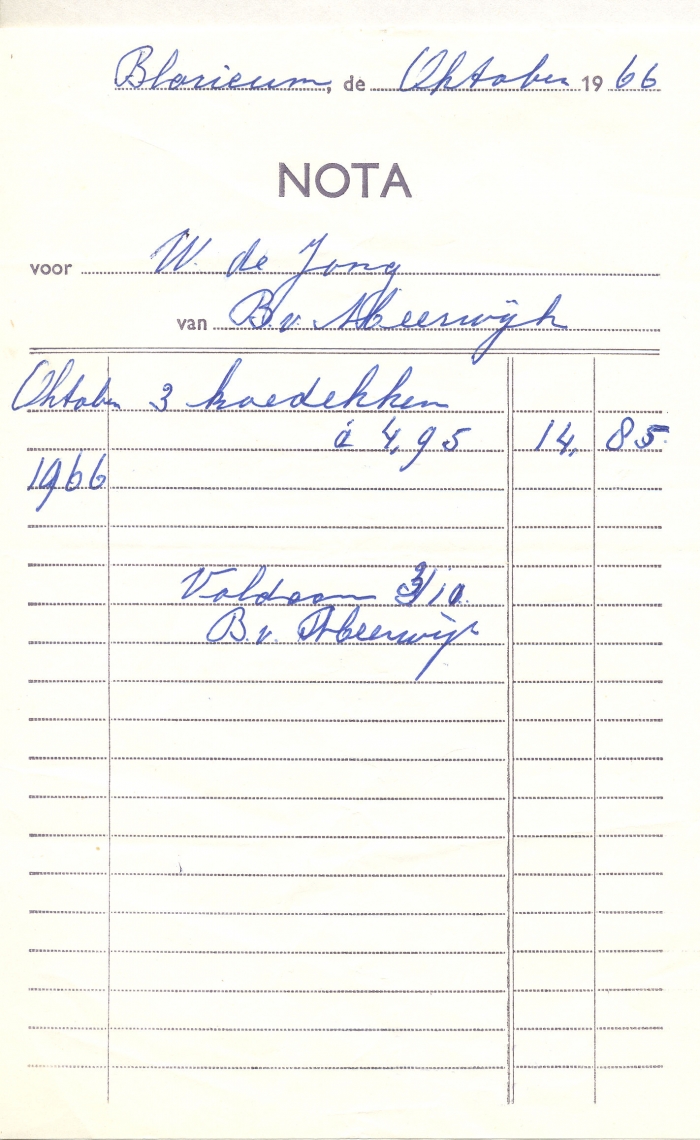 Blaricum, de Oktober 19 66
NOTA
voor W. de Jong
van B. v. Meerwijk
Oktober 3 koedekken
à 4,95 14, 85
1966
Voldaan 3/10.
B. v. Meerwijk